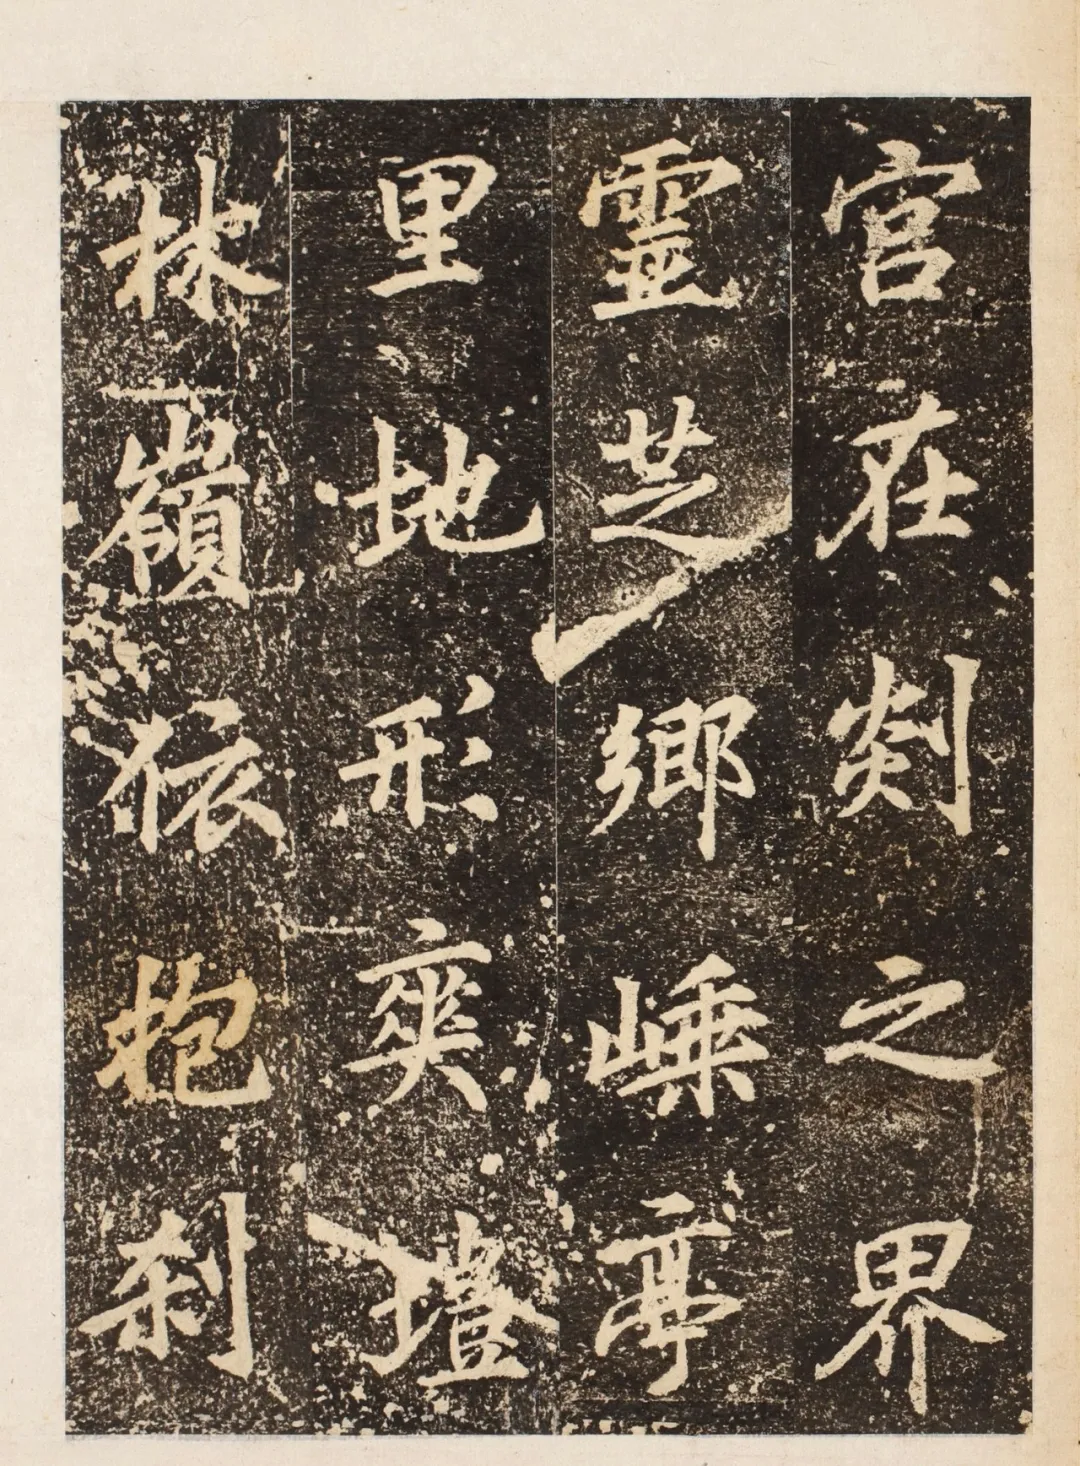 官在剡之界
靈芝鄉嵊亭
里地形爽塏
林嶺依抱刹